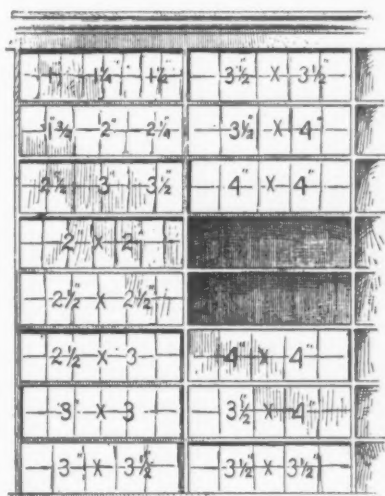 1" 1¼" 1½"
1¾" 2" 2¼"
2½" 3" 3½"
2" x 2"
2½" x 2½"
2½ x 3
3" x 3
3" x 3½"
3½" x 3½"
3½" x 4"
4" x 4"
4" x 4"
3½" x 4"
3½" x 3½"